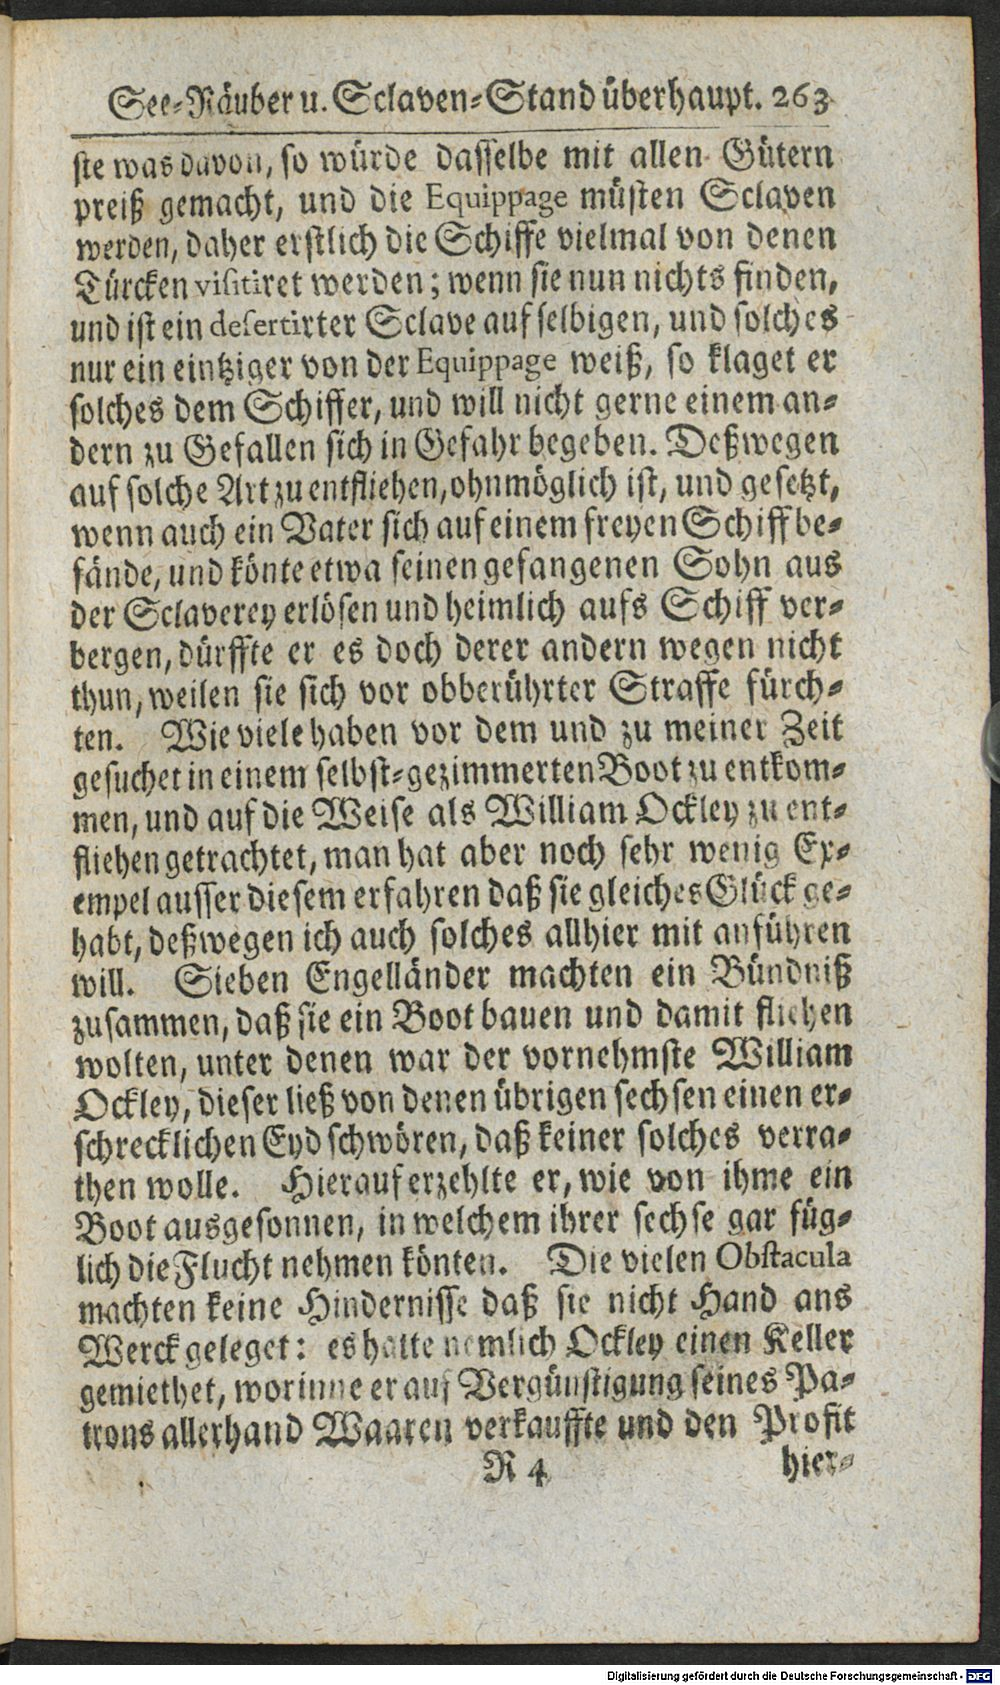 See-Räuber u. Sclaven-Stand überhaupt. 263
ste was davon, so würde dasselbe mit allen Gütern
preiß gemacht, und die Equippage müsten Sclaven
werden, daher erstlich die Schiffe vielmal von denen
Türcken visitiret werden; wenn sie nun nichts finden,
und ist ein desertirter Sclave auf selbigen, und solches
nur ein eintziger von der Equippage weiß, so klaget er
solches dem Schiffer, und will nicht gerne einem an-
dern zu Gefallen sich in Gefahr begeben. Deßwegen
auf solche Art zu entfliehen, ohnmöglich ist, und gesetzt,
wenn auch ein Vater sich auf einem freyen Schiff be-
fände, und könte etwa seinen gefangenen Sohn aus
der Sclaverey erlösen und heimlich aufs Schiff ver-
bergen, dürffte er es doch derer andern wegen nicht
thun, weilen sie sich vor obberührter Straffe fürch-
ten. Wie viele haben vor dem und zu meiner Zeit
gesuchet in einem selbst-gezimmerten Boot zu entkom-
men, und auf die Weise als William Ockley zu ent-
fliehen getrachtet, man hat aber noch sehr wenig Ex-
empel ausser diesem erfahren daß sie gleiches Glück ge-
habt, deßwegen ich auch solches allhier mit anführen
will. Sieben Engelländer machten ein Bündniß
zusammen, daß sie ein Boot bauen und damit fliehen
wolten, unter denen war der vornehmste William
Ockley, dieser ließ von denen übrigen sechsen einen er-
schrecklichen Eyd schwören, daß keiner solches verra-
then wolle. Hierauf erzehlte er, wie von ihme ein
Boot ausgesonnen, in welchem ihrer sechse gar füg-
lich die Flucht nehmen könten. Die vielen Obstacula
machten keine Hindernisse daß sie nicht Hand ans
Werck geleget: es hatte nemlich Ockley einen Keller
gemiethet, worinne er auf Vergünstigung seines Pa-
trons allerhand Waaren verkauffte und den Profit
R 4 hier-
Digitalisierung gefördert durch die Deutsche Forschungsgemeinschaft - DFG